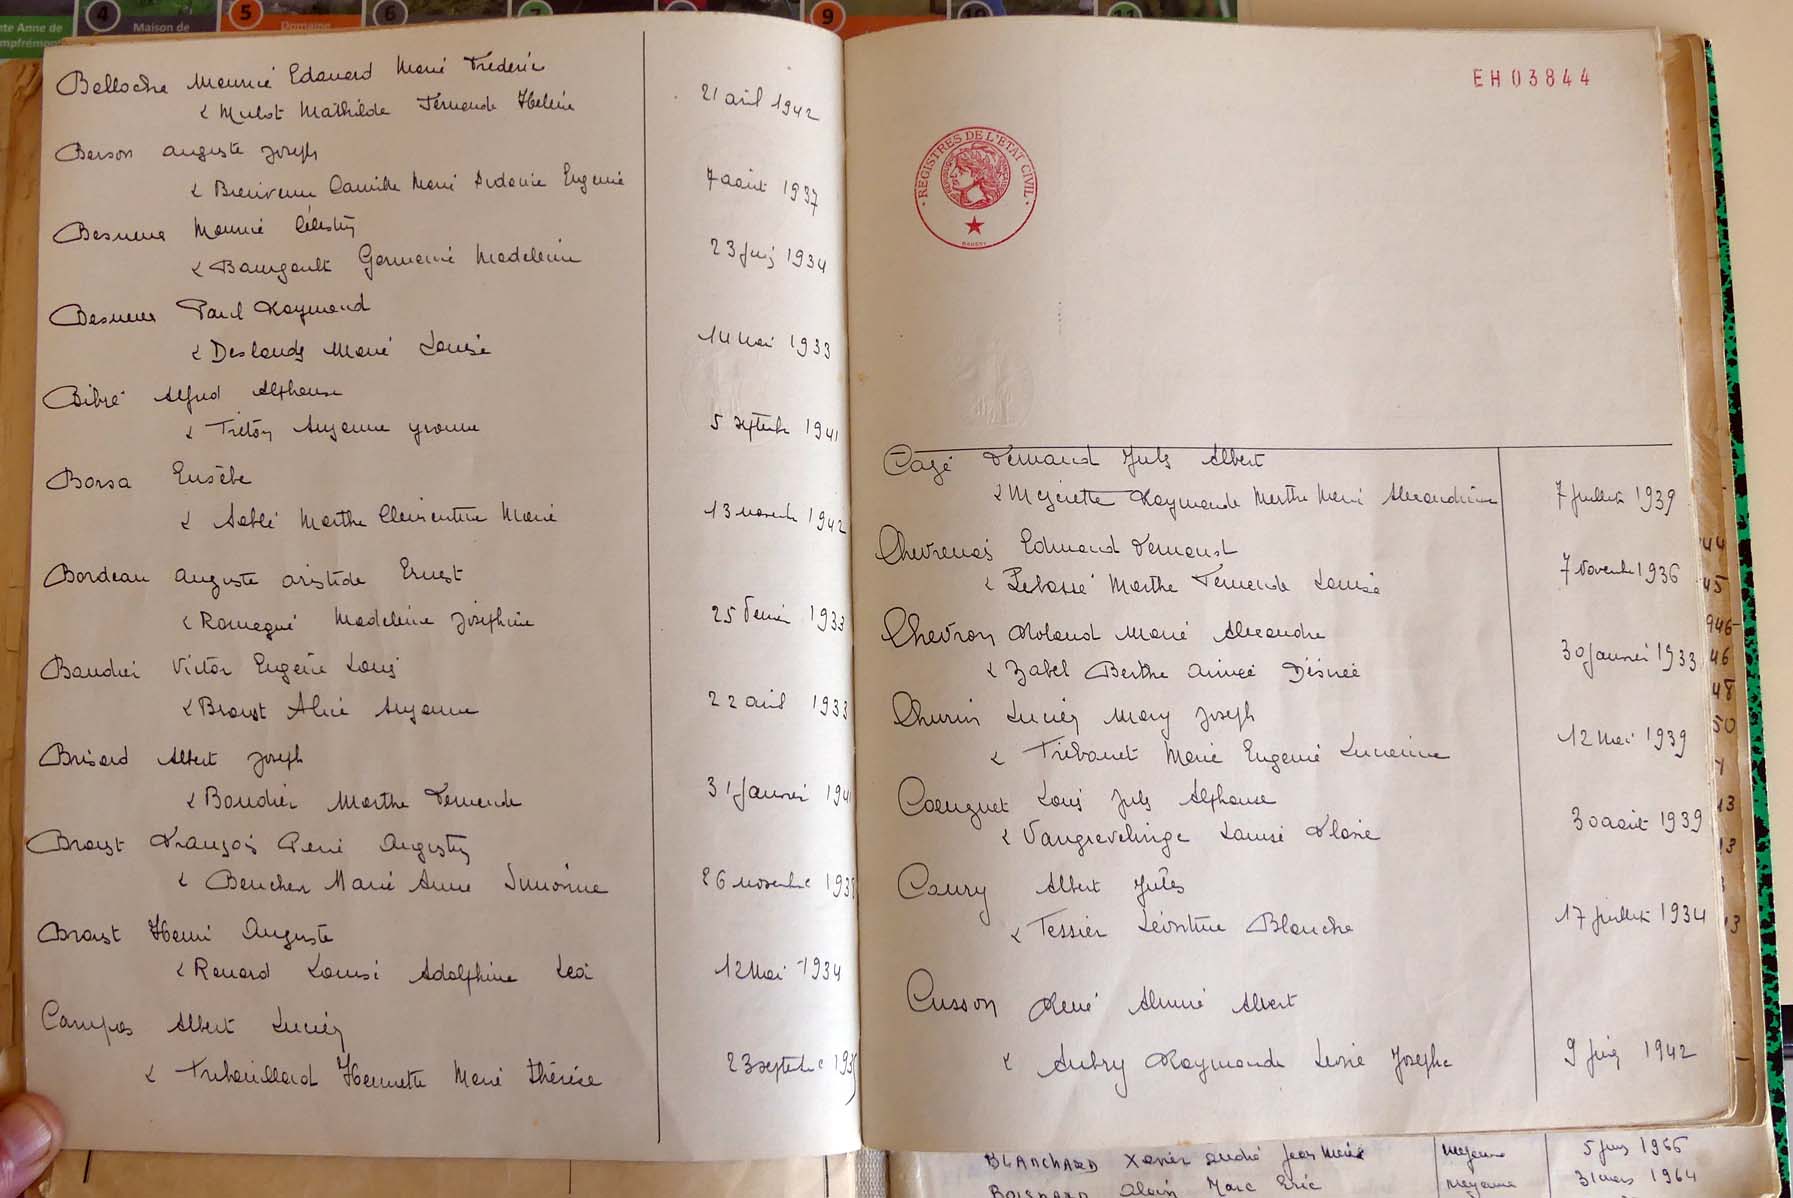 4
5
6
7
8
9
10
11
nte Anne de
Maison de
Domaine
Belloche Maurice Edouard Marie Frédéric
& Mulot Mathilde Fernande Hélène 21 avril 1942
Besson Auguste Joseph
& Bienvenu Camille Marie Sidonie Eugénie 7 août 1937
Besneux Maurice Célestin
& Baurgault Germaine Madeleine 23 juin 1934
Besneux Paul Raymond
& Deslandes Marie Louise 14 Mai 1933
Bibré Alfred Alphonse
& Triton Suzanne Yvonne 5 septembre 1941
Borsa Eusèbe
& Sablé Marthe Clémentine Marie 13 novembre 1942
Bordeau Auguste Aristide Ernest
& Romagné Madeleine Joséphine 25 Février 1933
Baudrier Victor Eugène Louis
& Broust Alice Suzanne 22 avril 1933
Brisard Albert Joseph
& Baudrier Marthe Fernande 31 Janvier 1941
Broust François René Augustin
& Beucher Marie Anne Simonne 26 novembre 193
Broust Henri Auguste
& Renard Louise Adolphine Léa 12 Mai 1934
Campos Albert Lucien
& Trihouillard Henriette Marie Thérèse 23 septembre 193
EH03844
REGISTRES DE L'ETAT CIVIL
Cazé Fernand Jules Albert
& Mézerette Raymonde Marthe Marie Alexandrine 7 juillet 1939
Chevrenais Edmond Fernand
& Lebossé Marthe Fernande Louise 7 Novembre 1936
Chevron Roland Marie Alexandre
& Zabel Berthe Aimée Désirée 30 Janvier 1933
Churin Lucien Mary Joseph
& Tribouet Marie Eugénie Lucienne 12 Mai 1939
Coenguet Louis Jules Alphonse
& Vangrevelinge Louise Flavie 30 août 1939
Coury Albert Jules
& Tessier Léontine Blanche 17 juillet 1934
Cusson René Aimé Albert
& Aubry Raymonde Léonie Josèphe 9 juin 1942
44
45
946
46
48
50
13
BLANCHARD Xavier André Jean Marie Mayenne 5 juin 1966
BOISNARD Alain Marc Eric Mayenne 31 mars 1964